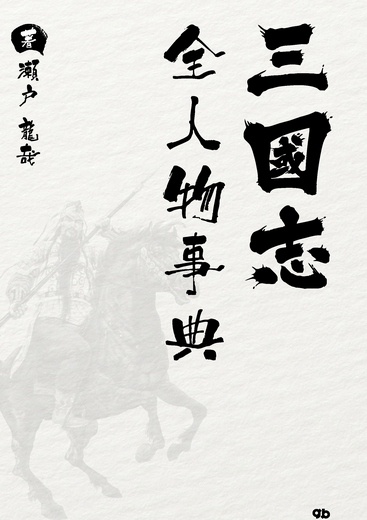 三國志
全人物事典
著
瀬戸 龍哉
gb